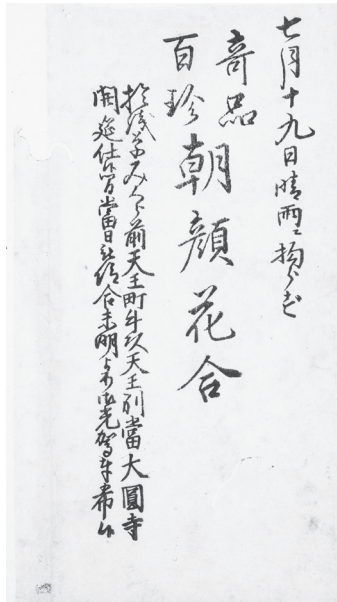 七月十九日晴雨ニ拘らず
奇品
百珍
朝顔花合
於浅草みくら前天王町牛頭天王別當大圓寺
開筵仕候間當日被仰合未明より御光駕奉希候